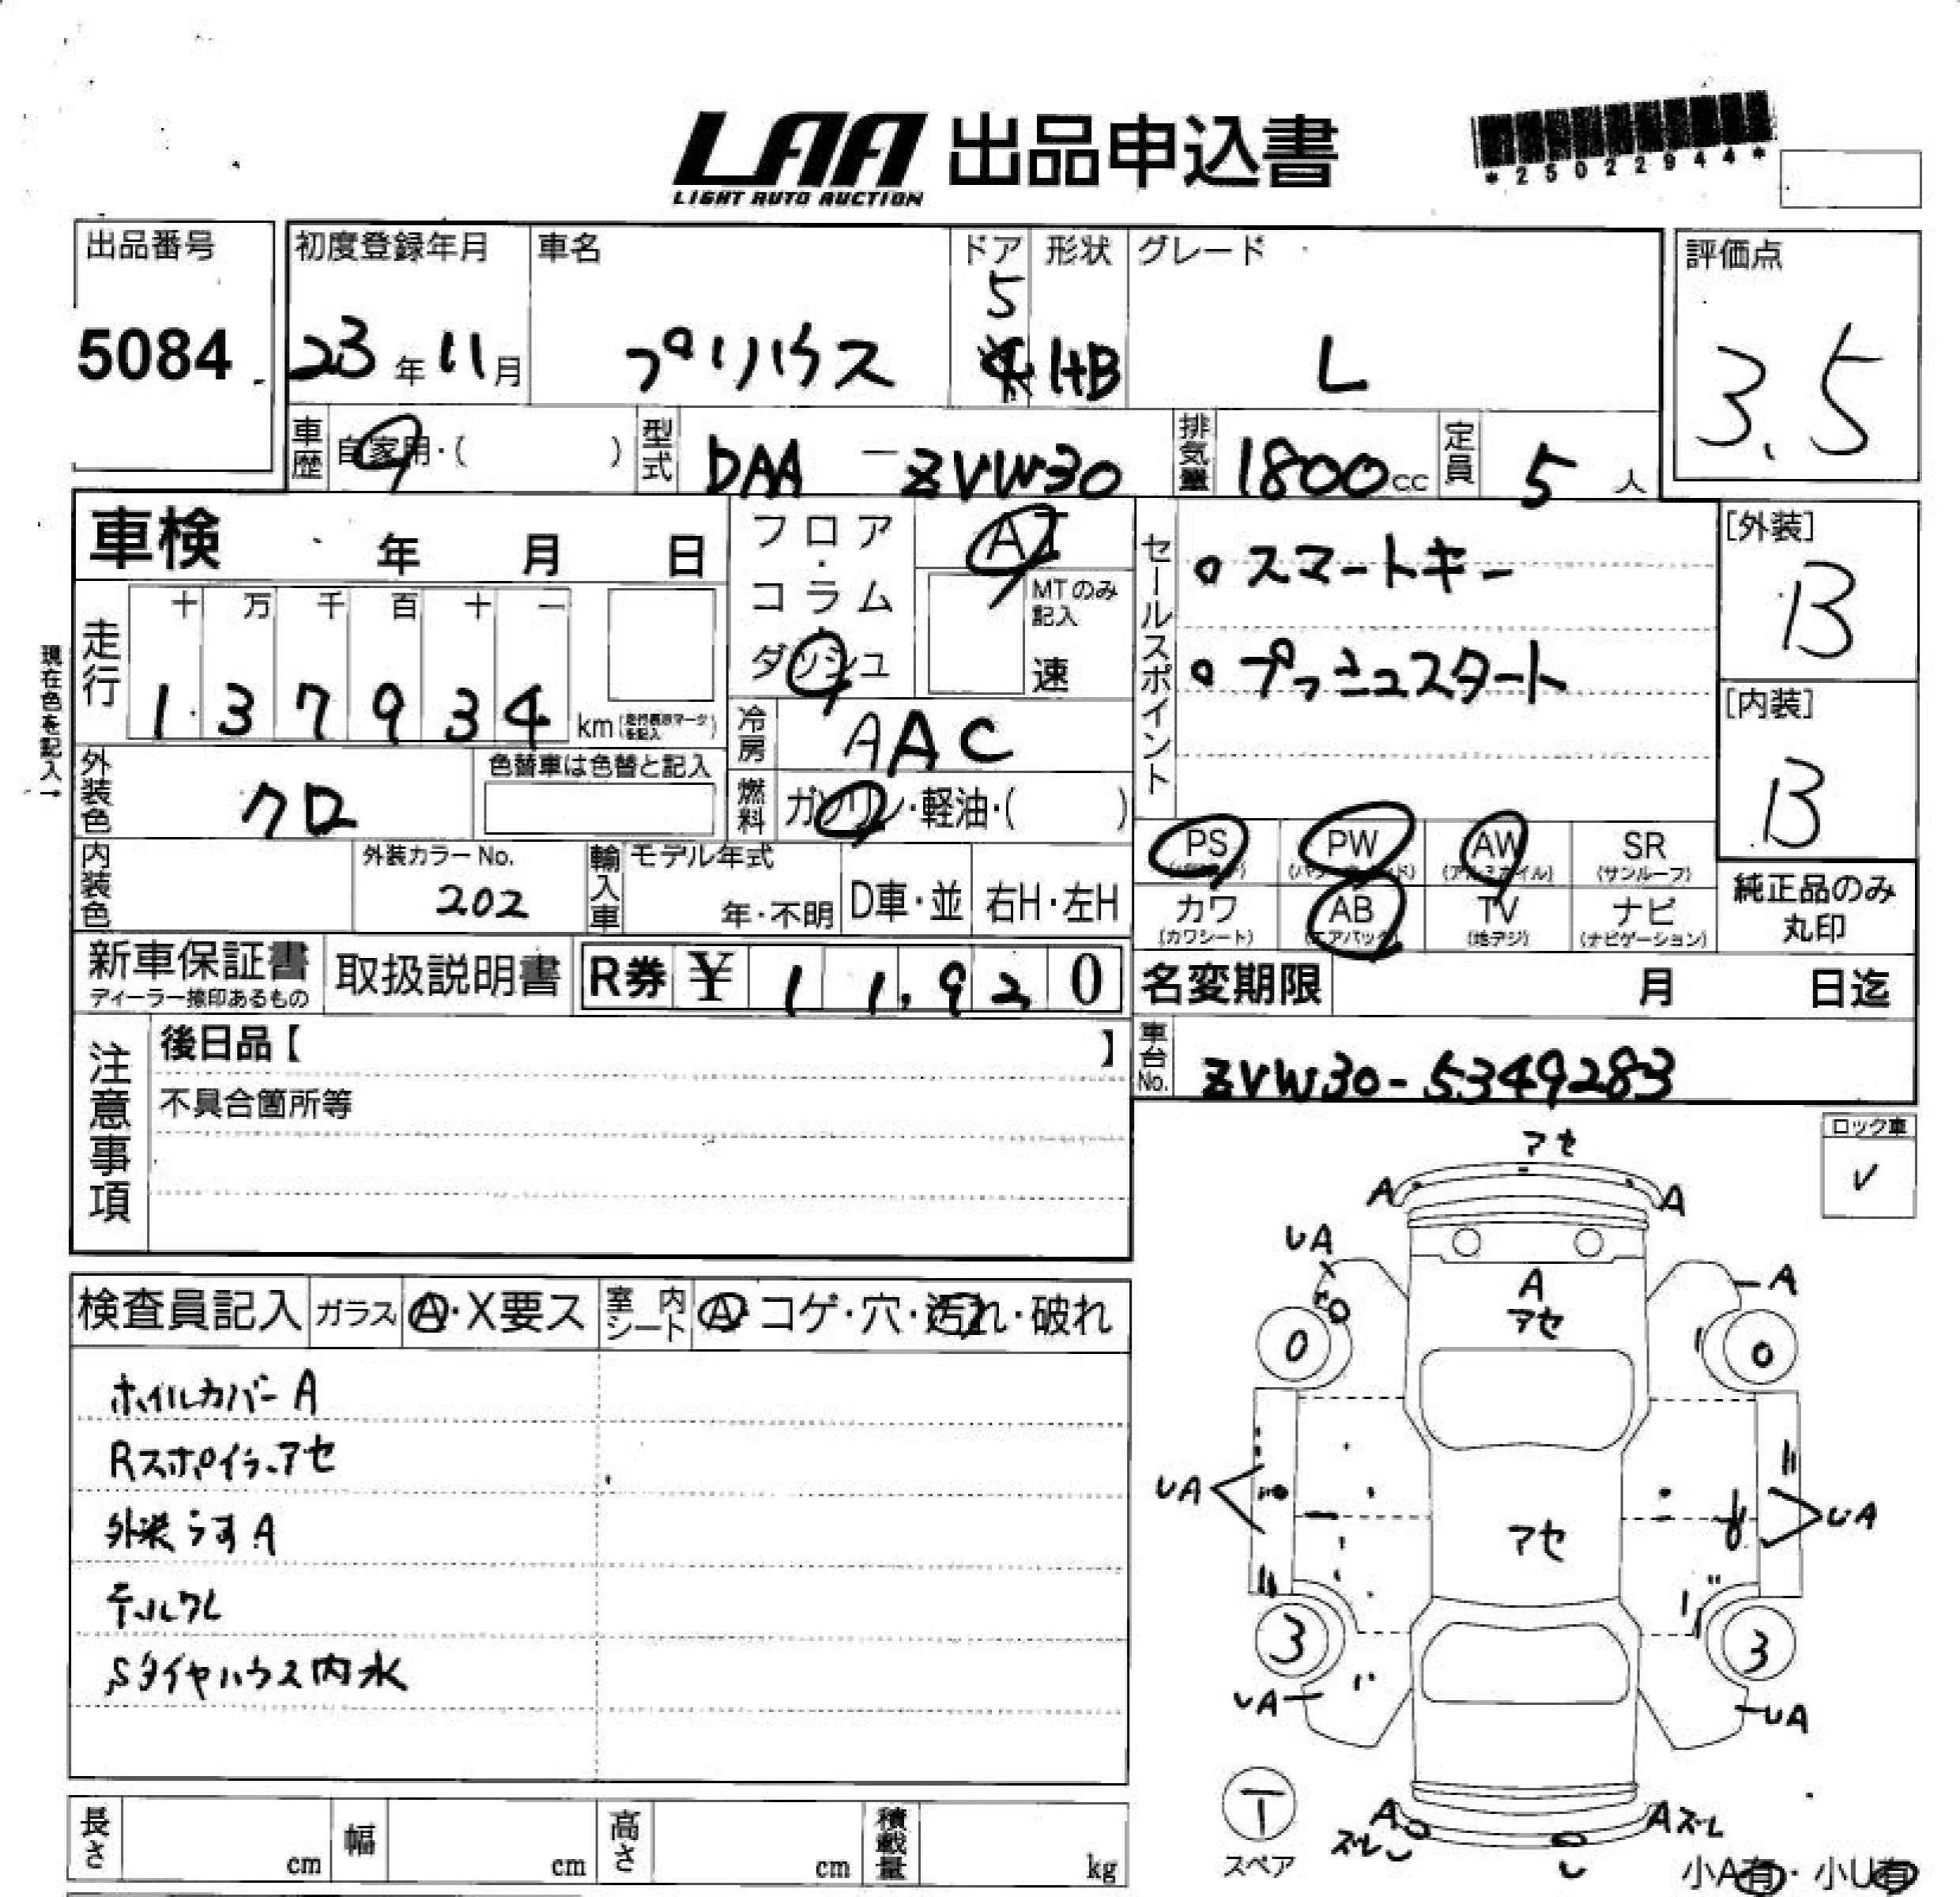 LAA 出品申込書
LIGHT AUTO AUCTION
*25022944*
出品番号
5084
初度登録年月
23年11月
車名
プリウス
ドア
5
形状
HB
グレード
L
評価点
3.5
車歴
自家用・( )
型式
DAA - ZVW30
排気量
1800cc
定員
5人
車検 年 月 日
フロア・コラム・ダッシュ
AT
MTのみ記入
速
セールスポイント
○スマートキー
○プッシュスタート
[外装]
B
[内装]
B
現在色を記入→
走行
十 万 千 百 十 一
1 3 7 9 3 4 km(走行表示マークを記入)
冷房
AAC
外装色
クロ
色替車は色替と記入
燃料
ガソリン・軽油・( )
内装色
外装カラーNo.
202
輸入車
モデル年式
年・不明
D車・並
右H・左H
PS
PW
AW
(アルミホイル)
SR
(サンルーフ)
カワ
(カワシート)
AB
(エアバック)
TV
(地デジ)
ナビ
(ナビゲーション)
純正品のみ
丸印
新車保証書
ディーラー捺印あるもの
取扱説明書
R券 ¥ 11,920
名変期限 月 日迄
注意事項
後日品【 】
不具合箇所等
車台No.
ZVW30-5349283
ロック車
✓
検査員記入
ガラス
A・X要ス
室内シート
A・コゲ・穴・汚れ・破れ
ホイルカバーA
Rスポイラーアセ
外装うすA
テールワレ
Sタイヤハウス内水
アセ
A
A
UA
A
A
アセ
0
0
UA
アセ
UA
3
3
UA
UA
A
ズレ
U
A ズレ
T
スペア
小A有・小U有
長さ cm
幅 cm
高さ cm
積載量 kg